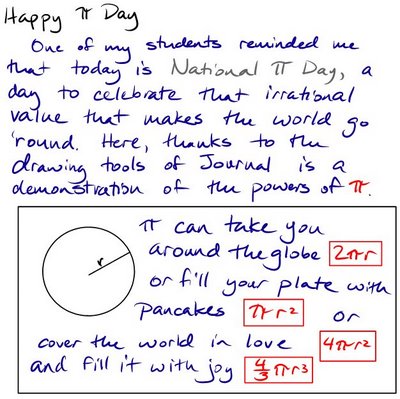 Happy π Day
One of my students reminded me
that today is National π Day, a
day to celebrate that irrational
value that makes the world go
'round. Here, thanks to the
drawing tools of Journal is a
demonstration of the powers of π.
π can take you
r
around the globe 2πr
or fill your plate with
pancakes πr² or
cover the world in love 4πr²
and fill it with joy 4/3 πr³